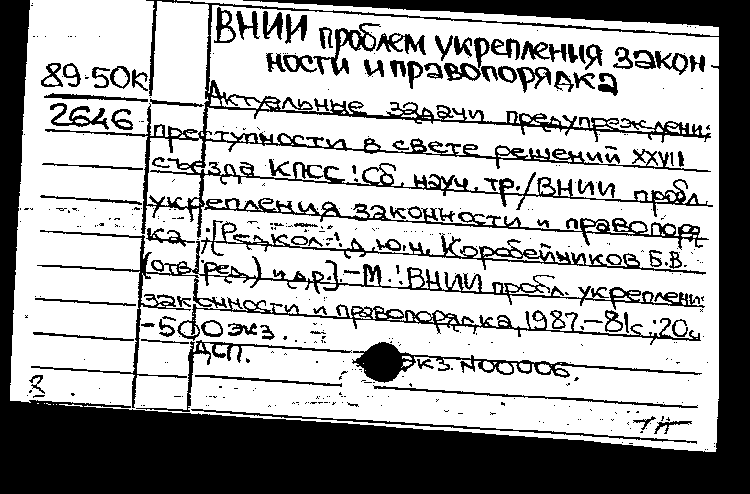 ВНИИ проблем укрепления закон-
ности и правопорядка
89-50к
2646
Актуальные задачи предупреждени
преступности в свете решений XXVII
съезда КПСС: Сб. науч. тр./ВНИИ пробл.
укрепления законности и правопоря
ка; [Редкол.: д.ю.н. Коробейников Б.В.
(отв. ред.) и др.].-М.: ВНИИ пробл. укреплени
законности и правопорядка, 1987.-81с.; 20с
-500 экз.
ДСП. Экз. N00006.
8